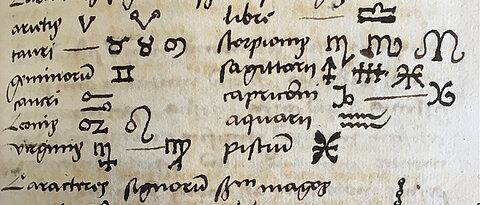 arietis
tauri
geminorū
cancri
Leonis
virginis
libre
scorpionis
sagittarii
capricorni
aquarii
pisciū
Caracteres signorū magos